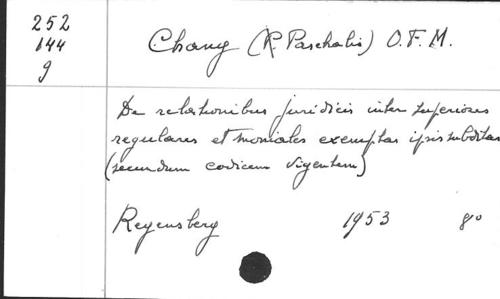 252
144
g
Chang (R. Paschalis) O. F. M.
De relationibus juridicis inter superiores
regulares et moniales exemptas ipsis subditas
(secundum codicem vigentem)
Regensberg 1953 8°